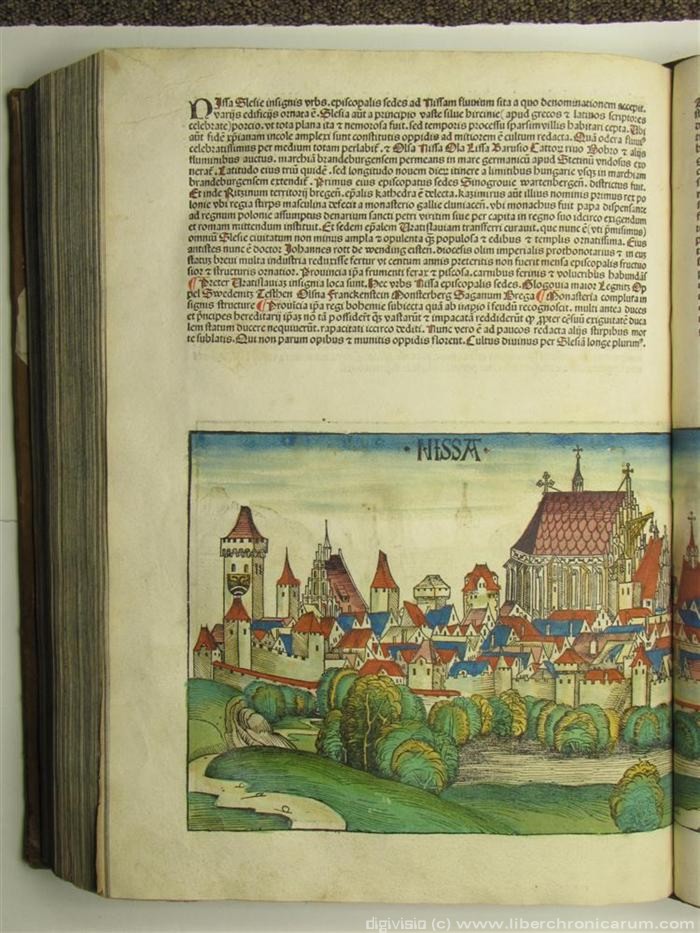 NIssa Slesie insignis vrbs. episcopalis sedes ad Nissam fluvium sita a quo denominationem accepit.
varijs edificijs ornata ē. Slesia aūt a principio vaste silue hircinie( apud grecos ⁊ latinos scriptores
celebrate) porcio. vt tota plana ita ⁊ nemorosa fuit. sed temporis processu sparsim villis habitari cepta. Vbi
aūt fidē xp̄ianam incole amplexi sunt constitutis oppidis ad mitiorem ē cultum redacta. Quā odera fluuiꝰ
celebratissimus per medium totam perlabit̄. ⁊ Olsa Nissa Ola Lissa Barusio Cattoz riuo Nobro ⁊ alijs
fluminibus auctus. marchiā brandeburgensem permeans in mare germanicū apud Stetinū vndosus exo
nerat̄. Latitudo eius triū quidē. sed longitudo nouem dierū itinere a limitibus hungarie vsqꝫ in marchiam
brandeburgensem extendit̄. Primus eius episcopatus sedes Smogrouie wartenbergeñ. districtus fuit.
Et inde Ritzinum territorij bregeñ. ep̄alis kathedra ē delecta. Kazimirus aūt illius nominis primus rex po
lonie vbi regia stirps masculina defecit a monasterio gallie cluniaceñ. vbi monachus fuit papa dispensante
ad regnum polonie assumptus denarium sancti petri viritim siue per capita in regno suo idcirco exigendum
et romam mittendum instituit. Et sedem ep̄alem Vratislauiam transferri curauit. que nunc ē (vti p̄misimus)
omniū Slesie ciuitatum non minus ampla ⁊ opulenta qꝫ populosa ⁊ edibus ⁊ templis ornatissima. Eius
antistes nunc ē doctor Johannes rott de wending eisteñ. diocesis olim imperialis prothonotarius ⁊ in eū
statūs breui multa industria reduxisse fertur vt centum annis preteritis non fuerit mensa episcopalis fructuo
sior ⁊ structuris ornatior. Prouincia ip̄a frumenti ferax ⁊ piscosa. carnibus ferinis ⁊ volucribus habundās
¶ Preter Vratislauiaꝫ insignia loca sunt. Hec vrbs Nissa episcopalis sedes. Glogouia maior Legnitz Op
pel Swedenitz Teschen Olsna Franckenstein Monsterberg Saganum Brega ¶ Monasteria complura in
signis structure ¶ Prouicia ip̄a regi bohemie subiecta quā ab impio iseudū recognoscit. multi antea duces
et p̄ncipes hereditarij ip̄aꝫ nō tā possiderūt qꝫ vastarūt ⁊ impacatā reddiderūt qꝫ ꝓpter cēsuū exiguitatē duca
lem statum ducere nequiuerūt. rapacitati iccirco dediti. Nunc vero ē ad paucos redacta alijs stirpibus mor
te sublatis. Qui non parum opibus ⁊ munitis oppidis florent. Cultus diuinus per Slesiā longe plurimꝰ.
NISSA
digivisio (c) www.liberchronicarum.com